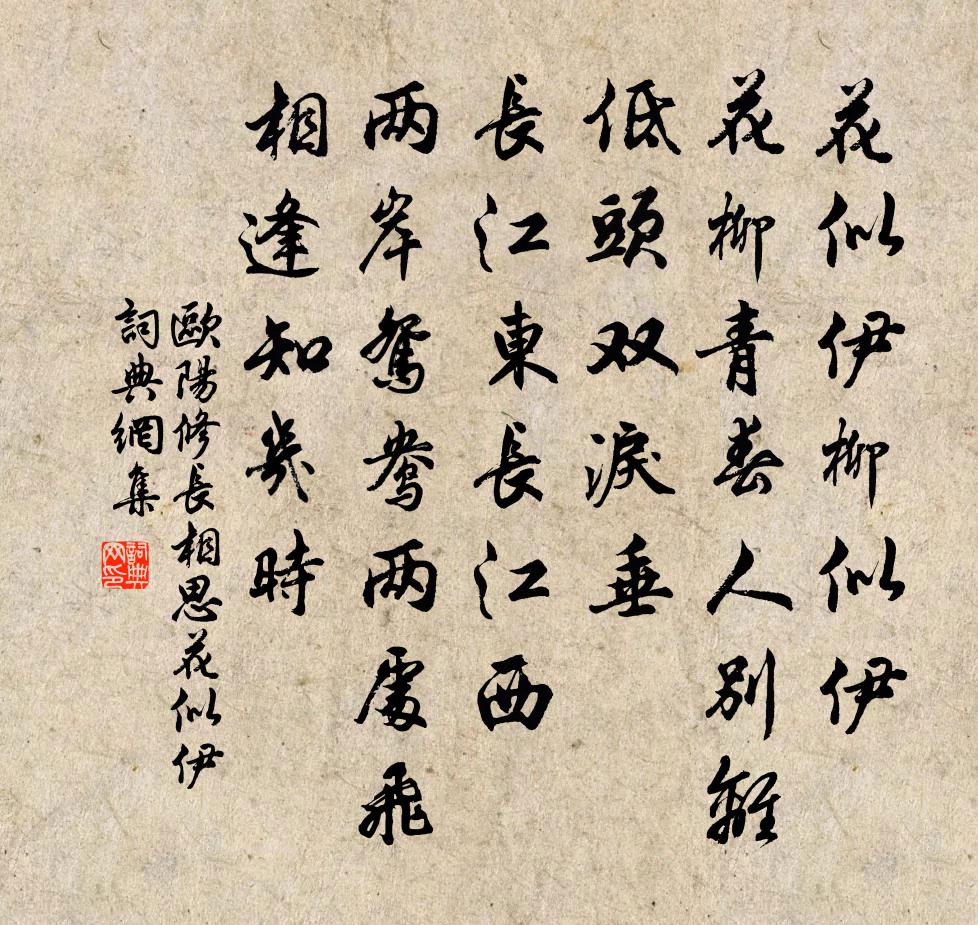 花似伊柳似伊
花柳青春人別離
低頭双淚垂
長江東長江西
两岸鴛鴦两處飛
相逢知幾時
歐陽修長相思花似伊
詞典網集
詞典
网印